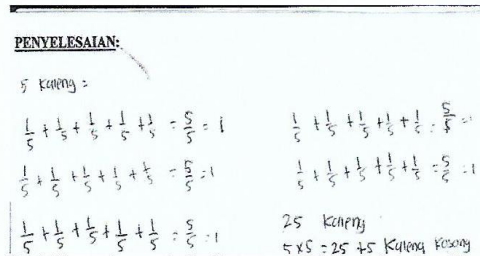 PENYELESAIAN:
5 Kaleng =
1/5 + 1/5 + 1/5 + 1/5 + 1/5 = 5/5 = 1
1/5 + 1/5 + 1/5 + 1/5 + 1/5 = 5/5 = 1
1/5 + 1/5 + 1/5 + 1/5 + 1/5 = 5/5 = 1
1/5 + 1/5 + 1/5 + 1/5 + 1/5 = 5/5 = 1
1/5 + 1/5 + 1/5 + 1/5 + 1/5 = 5/5 = 1
25 Kaleng
5 x 5 = 25 + 5 Kaleng Kosong